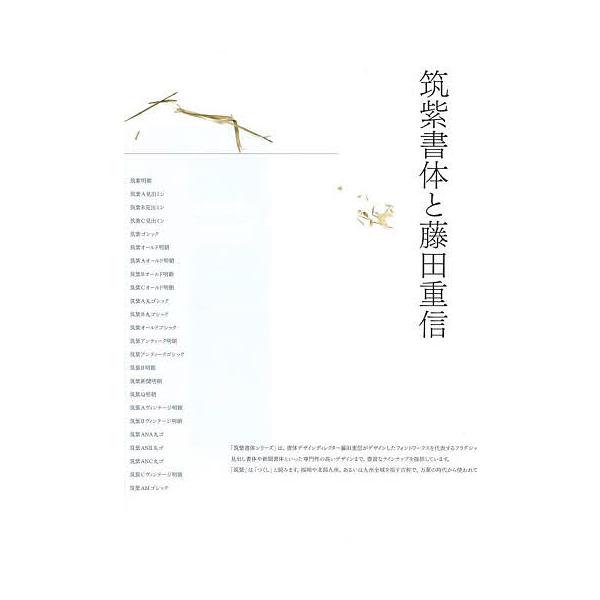 筑紫書体と藤田重信
筑紫明朝
筑紫A見出ミン
筑紫B見出ミン
筑紫C見出ミン
筑紫ゴシック
筑紫オールド明朝
筑紫Aオールド明朝
筑紫Bオールド明朝
筑紫Cオールド明朝
筑紫A丸ゴシック
筑紫B丸ゴシック
筑紫オールドゴシック
筑紫アンティーク明朝
筑紫アンティークゴシック
筑紫H明朝
筑紫新聞明朝
筑紫Q明朝
筑紫Aヴィンテージ明朝
筑紫Bヴィンテージ明朝
筑紫ANA丸ゴ
筑紫ANB丸ゴ
筑紫ANC丸ゴ
筑紫Cヴィンテージ明朝
筑紫AMゴシック
「筑紫書体シリーズ」は、書体デザインディレクター藤田重信がデザインしたフォントワークスを代表するフラグシッ
見出し書体や新聞書体といった専門性の高いデザインまで、豊富なラインナップを提供しています。
「筑紫」は「つくし」と読みます。福岡や北部九州、あるいは九州全域を指す古称で、万葉の時代から使われて